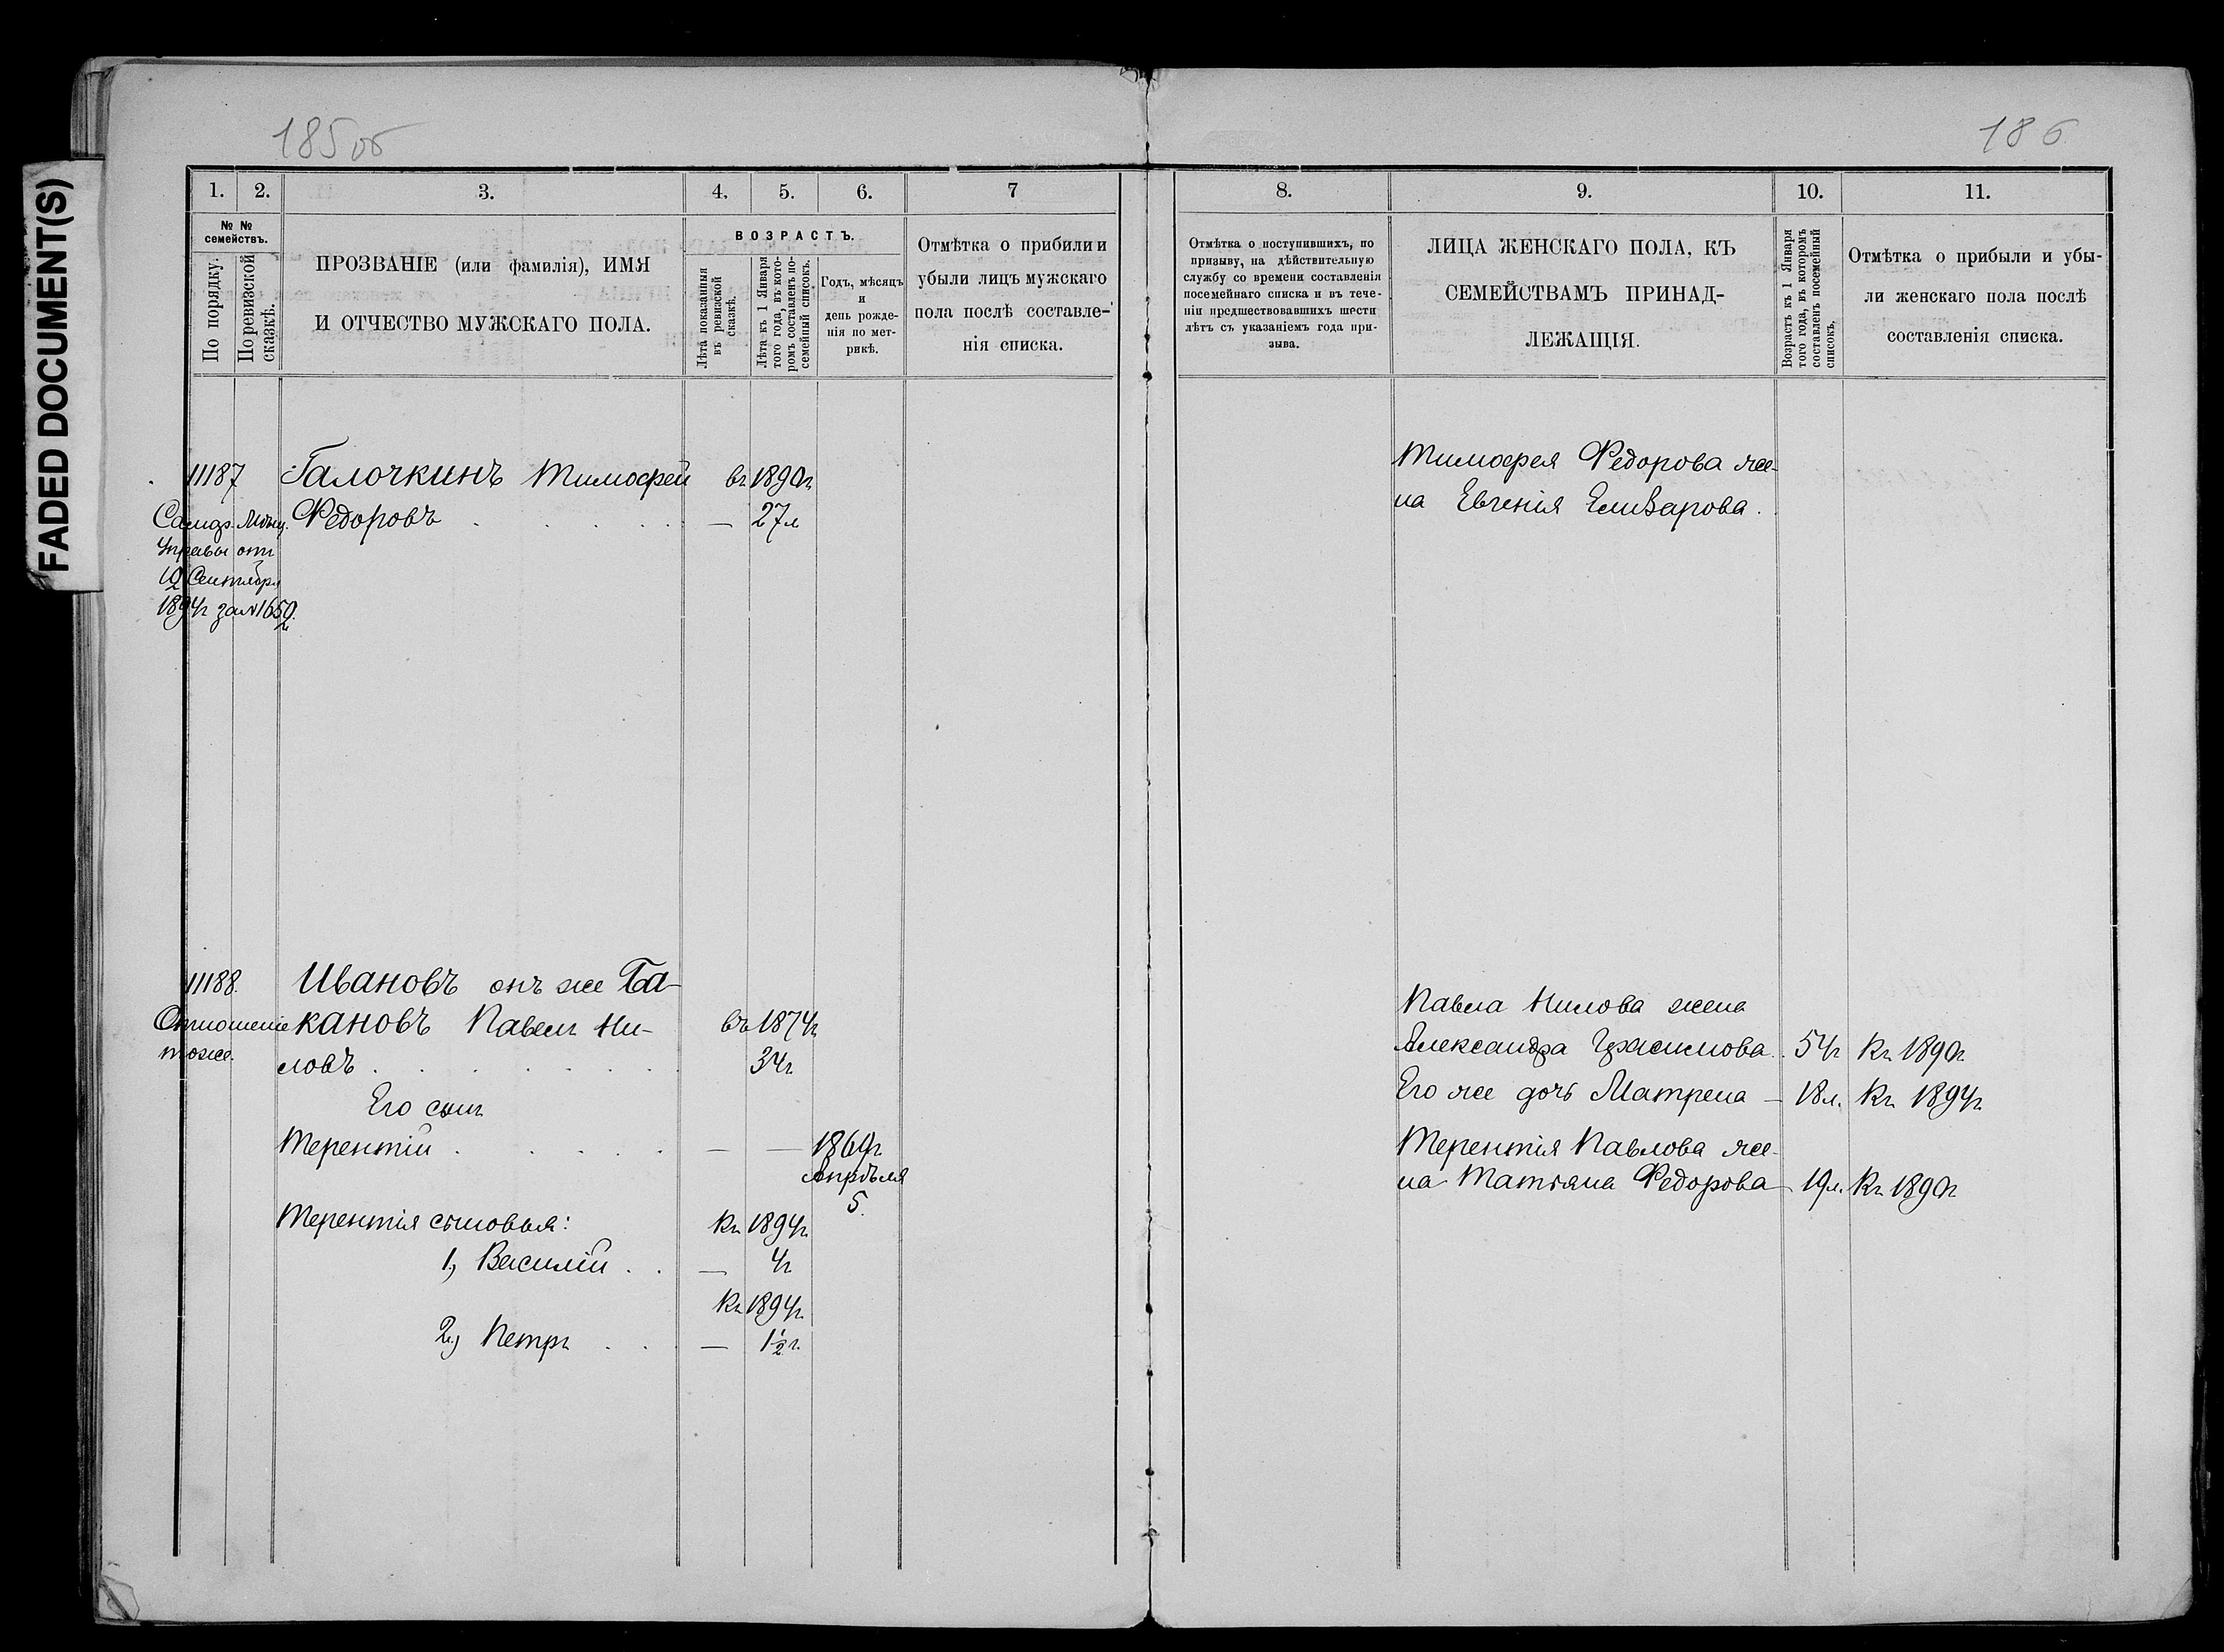 FADED DOCUMENT(S)
185об
1. 2. 3. 4. 5. 6. 7
№ №
семействъ.
По порядку.
По ревизской
сказкѣ.
ПРОЗВАНІЕ (или фамилія), ИМЯ
И ОТЧЕСТВО МУЖСКАГО ПОЛА.
ВОЗРАСТЪ.
Лѣта показанныя
въ ревизской
сказкѣ.
Лѣта къ 1 Января
того года, въ кото-
ромъ составленъ по-
семейный списокъ.
Годъ, мѣсяцъ
и
день рожде-
нія по мет-
рикѣ.
Отмѣтка о прибыли и
убыли лицъ мужскаго
пола послѣ составле-
нія списка.
11187 Галочкинъ Тимофей въ 1890г
Федоровъ — 27л
Самар. Мѣщ.
Управы отъ
10 Сентября
1894г за №1650.
11188. Ивановъ онъ же Ба-
кановъ Павелъ Ни- въ 1874г
ловъ 34г
Отношеніе
тоже.
Его сынъ
Терентій — — 1869г
Апрѣля
5.
Терентія сыновья: Къ 1894г.
1, Василій — 4г
Къ 1894г.
2, Петръ — 1½г.
186
8. 9. 10. 11.
Отмѣтка о поступившихъ, по
призыву, на дѣйствительную
службу со времени составленія
посемейнаго списка и въ тече-
ніи предшествовавшихъ шести
лѣтъ съ указаніемъ года при-
зыва.
ЛИЦА ЖЕНСКАГО ПОЛА, КЪ
СЕМЕЙСТВАМЪ ПРИНАД-
ЛЕЖАЩІЯ.
Возрастъ къ 1 Января
того года, въ которомъ
составленъ посемейный
списокъ.
Отмѣтка о прибыли и убы-
ли женскаго пола послѣ
составленія списка.
Тимофея Федорова же-
на Евгенія Елизарова.
Павла Нилова жена
Александра Герасимова. 54г Къ 1890г
Его же дочь Матрена — 18л. Къ 1894г.
Терентія Павлова же-
на Татьяна Федорова 19л. Къ 1890г